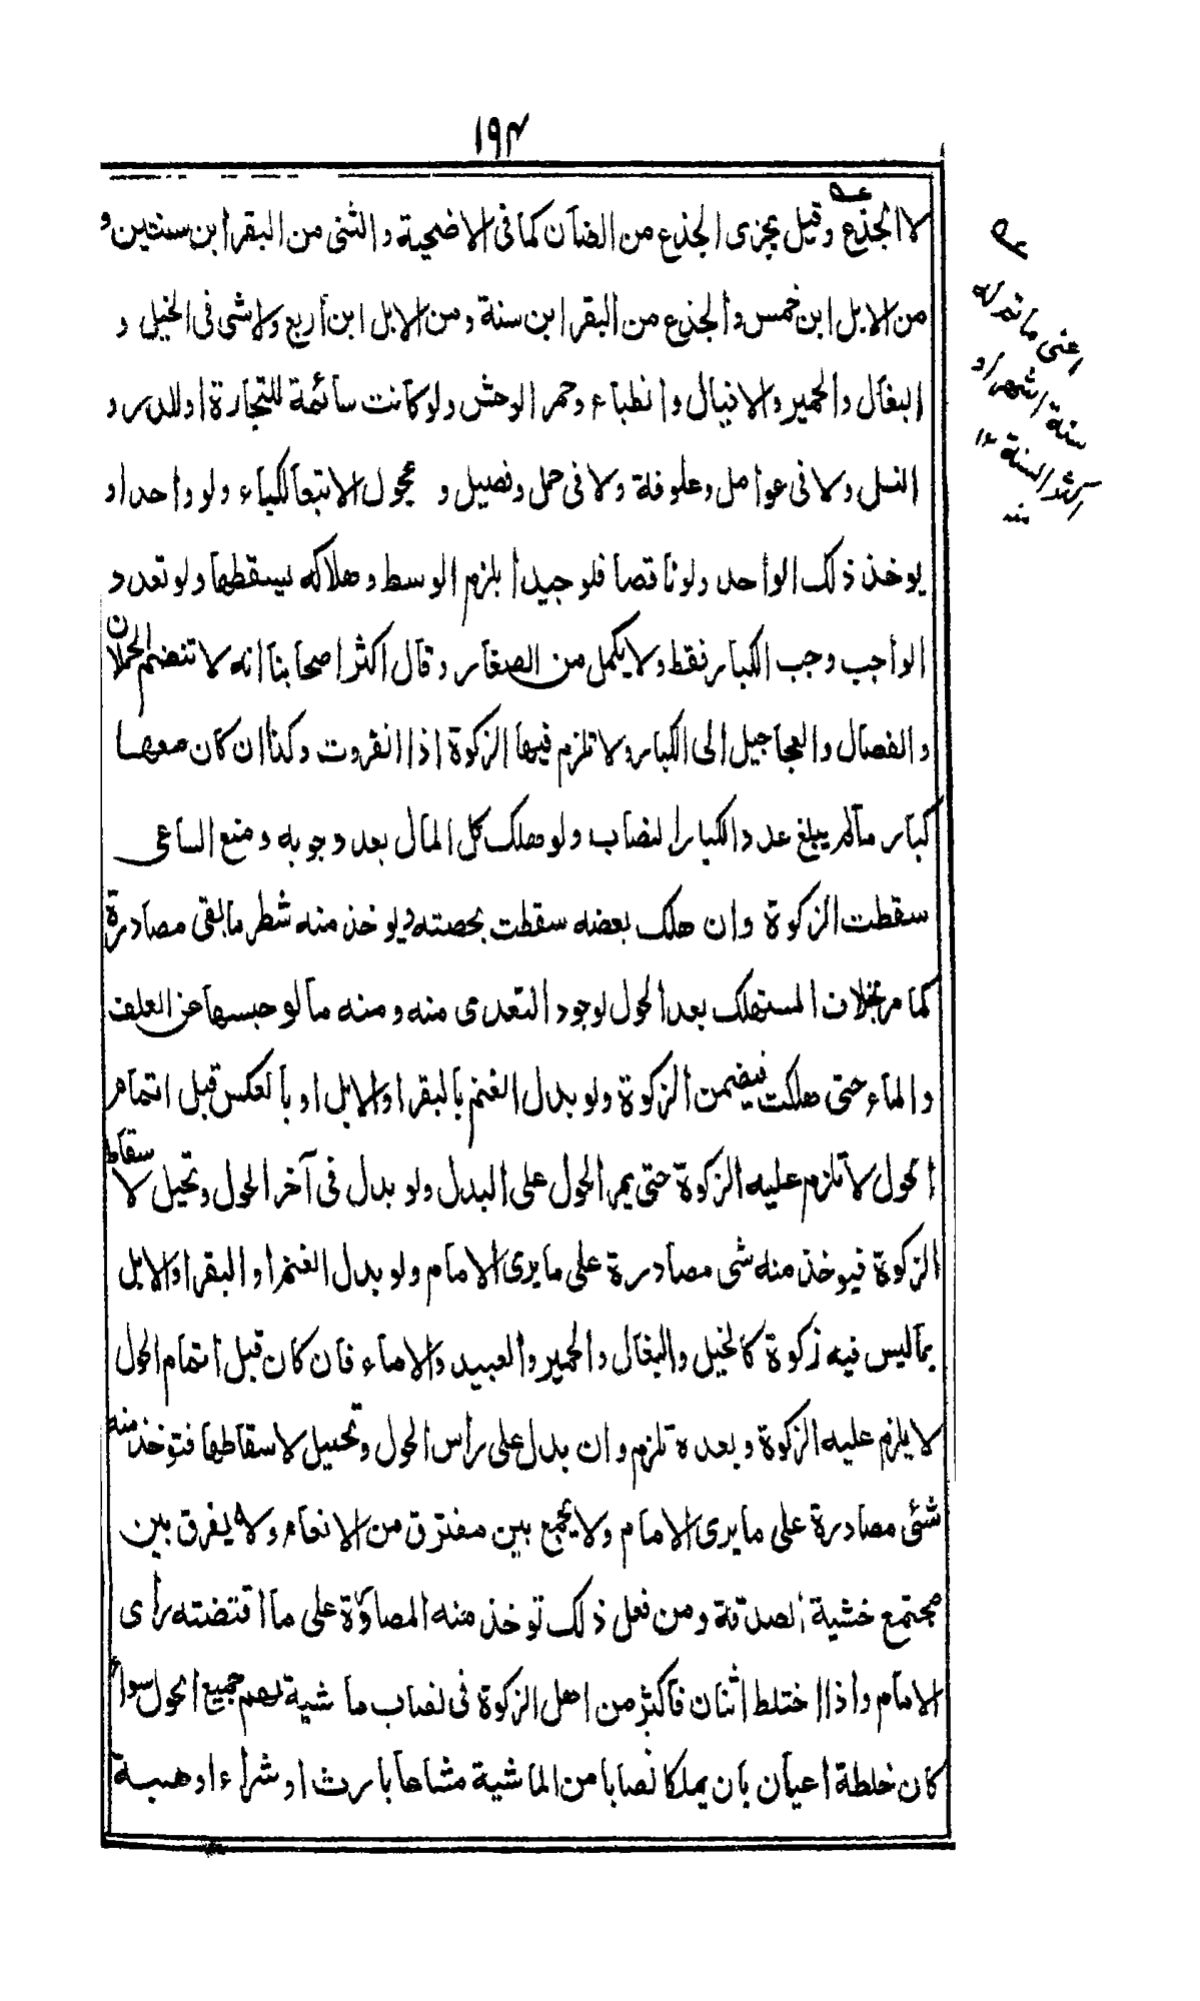 ١٩٣
لا الجذع وقيل يجزى الجذع من الضأن كما فى الاضحية والثنى من البقر ابن سنتين و
من الابل ابن خمس والجذع من البقر ابن سنة ومن الابل ابن أربع ولاشى فى الخيل و
البغال والحمير والافيال والظباء وحمر الوحش ولو كانت سائمة للتجارة او للدر و
النسل ولا فى عوامل وعلوفة ولا فى حمل وفصيل و عجول الا تبعا لكباء ولو واحدا و
يوخذ ذلك الواحد ولو ناقصا فلو جيدا يلزم الوسط وهلاكه يسقطها ولو تعدد
الواجب وجب الكبار فقط ولا يكمل من الصغار وقال اكثر اصحابنا انه لا تنضم الحملان
والفصال والعجاجيل الى الكبار ولا تلزم فيها الزكوة اذا انفردت وكذا ان كان معها
كبار مالم يبلغ عدد الكبار النصاب ولو هلك كل المال بعد وجوبه ومنع الساعى
سقطت الزكوة وان هلك بعضه سقطت بحصته ويوخذ منه شطر ما بقى مصادرة
كما مر بخلاف المستهلك بعد الحول لوجود التعدى منه ومنه مالو حبسها عن العلف
والماء حتى هلكت فيضمن الزكوة ولو بدل الغنم بالبقر او الابل او بالعكس قبل اتمام
الحول لا تلزم عليه الزكوة حتى يمر الحول على البدل ولو بدل فى آخر الحول وتحيل لاسقاط
الزكوة فيوخذ منه شى مصادرة على ما يرى الامام ولو بدل الغنم او البقر او الابل
بما ليس فيه زكوة كالخيل والبغال والحمير والعبيد والاماء فان كان قبل اتمام الحول
لا يلزم عليه الزكوة وبعده تلزم وان بدل على رأس الحول وتحيل لاسقاطها فتوخذ منه
شئى مصادرة على ما يرى الامام ولا يجمع بين مفترق من الانعام ولا يفرق بين
مجتمع خشية الصدقة ومن فعل ذلك توخذ منه المصادرة على ما اقتضته رأى
الامام واذا اختلط اثنان فاكثر من اهل الزكوة فى نصاب ماشية لهم جميع الحول سواء
كان خلطة اعيان بان يملكا نصابا من الماشية مشاعا بارث او شراء او هبة
عه
اعنى ما تم له
ستة اشهر او
اكثر السنة ١٢
منه